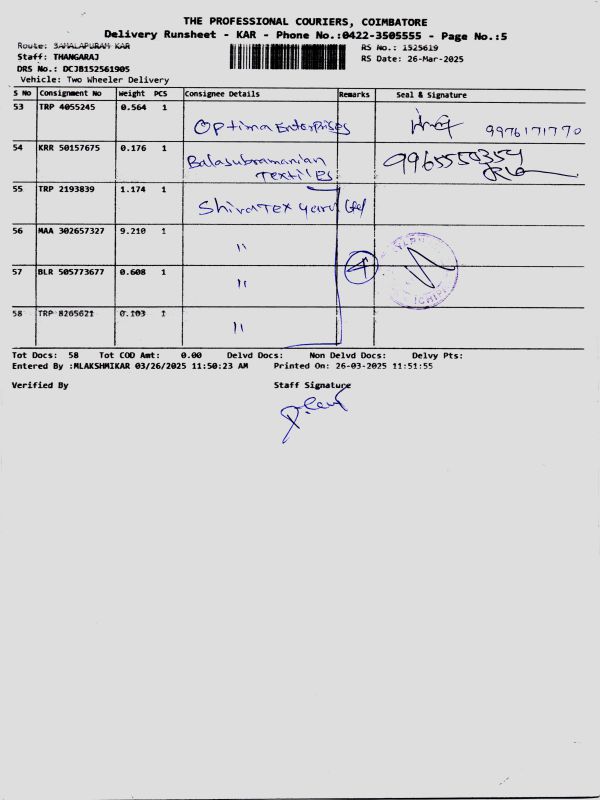 THE PROFESSIONAL COURIERS, COIMBATORE
Delivery Runsheet - KAR - Phone No.:0422-3505555 - Page No.:5
Route: SAMALAPURAM KAR
RS No.: 1525619
Staff: THANGARAJ
RS Date: 26-Mar-2025
DRS No.: DCJB152561905
Vehicle: Two Wheeler Delivery
S No Consignment No Weight PCS Consignee Details Remarks Seal & Signature
53 TRP 4055245 0.564 1 Optima Enterprises 9976171770
54 KRR 50157675 0.176 1 Balasubramanian Textiles 9965550354
55 TRP 2193839 1.174 1 Shiva Tex yarn
56 MAA 302657327 9.210 1 "
4
57 BLR 505773677 0.608 1 "
58 TRP 8265621 0.103 1 "
Tot Docs: 58 Tot COD Amt: 0.00 Delvd Docs: Non Delvd Docs: Delvy Pts:
Entered By :MLAKSHMIKAR 03/26/2025 11:50:23 AM Printed On: 26-03-2025 11:51:55
Verified By Staff Signature